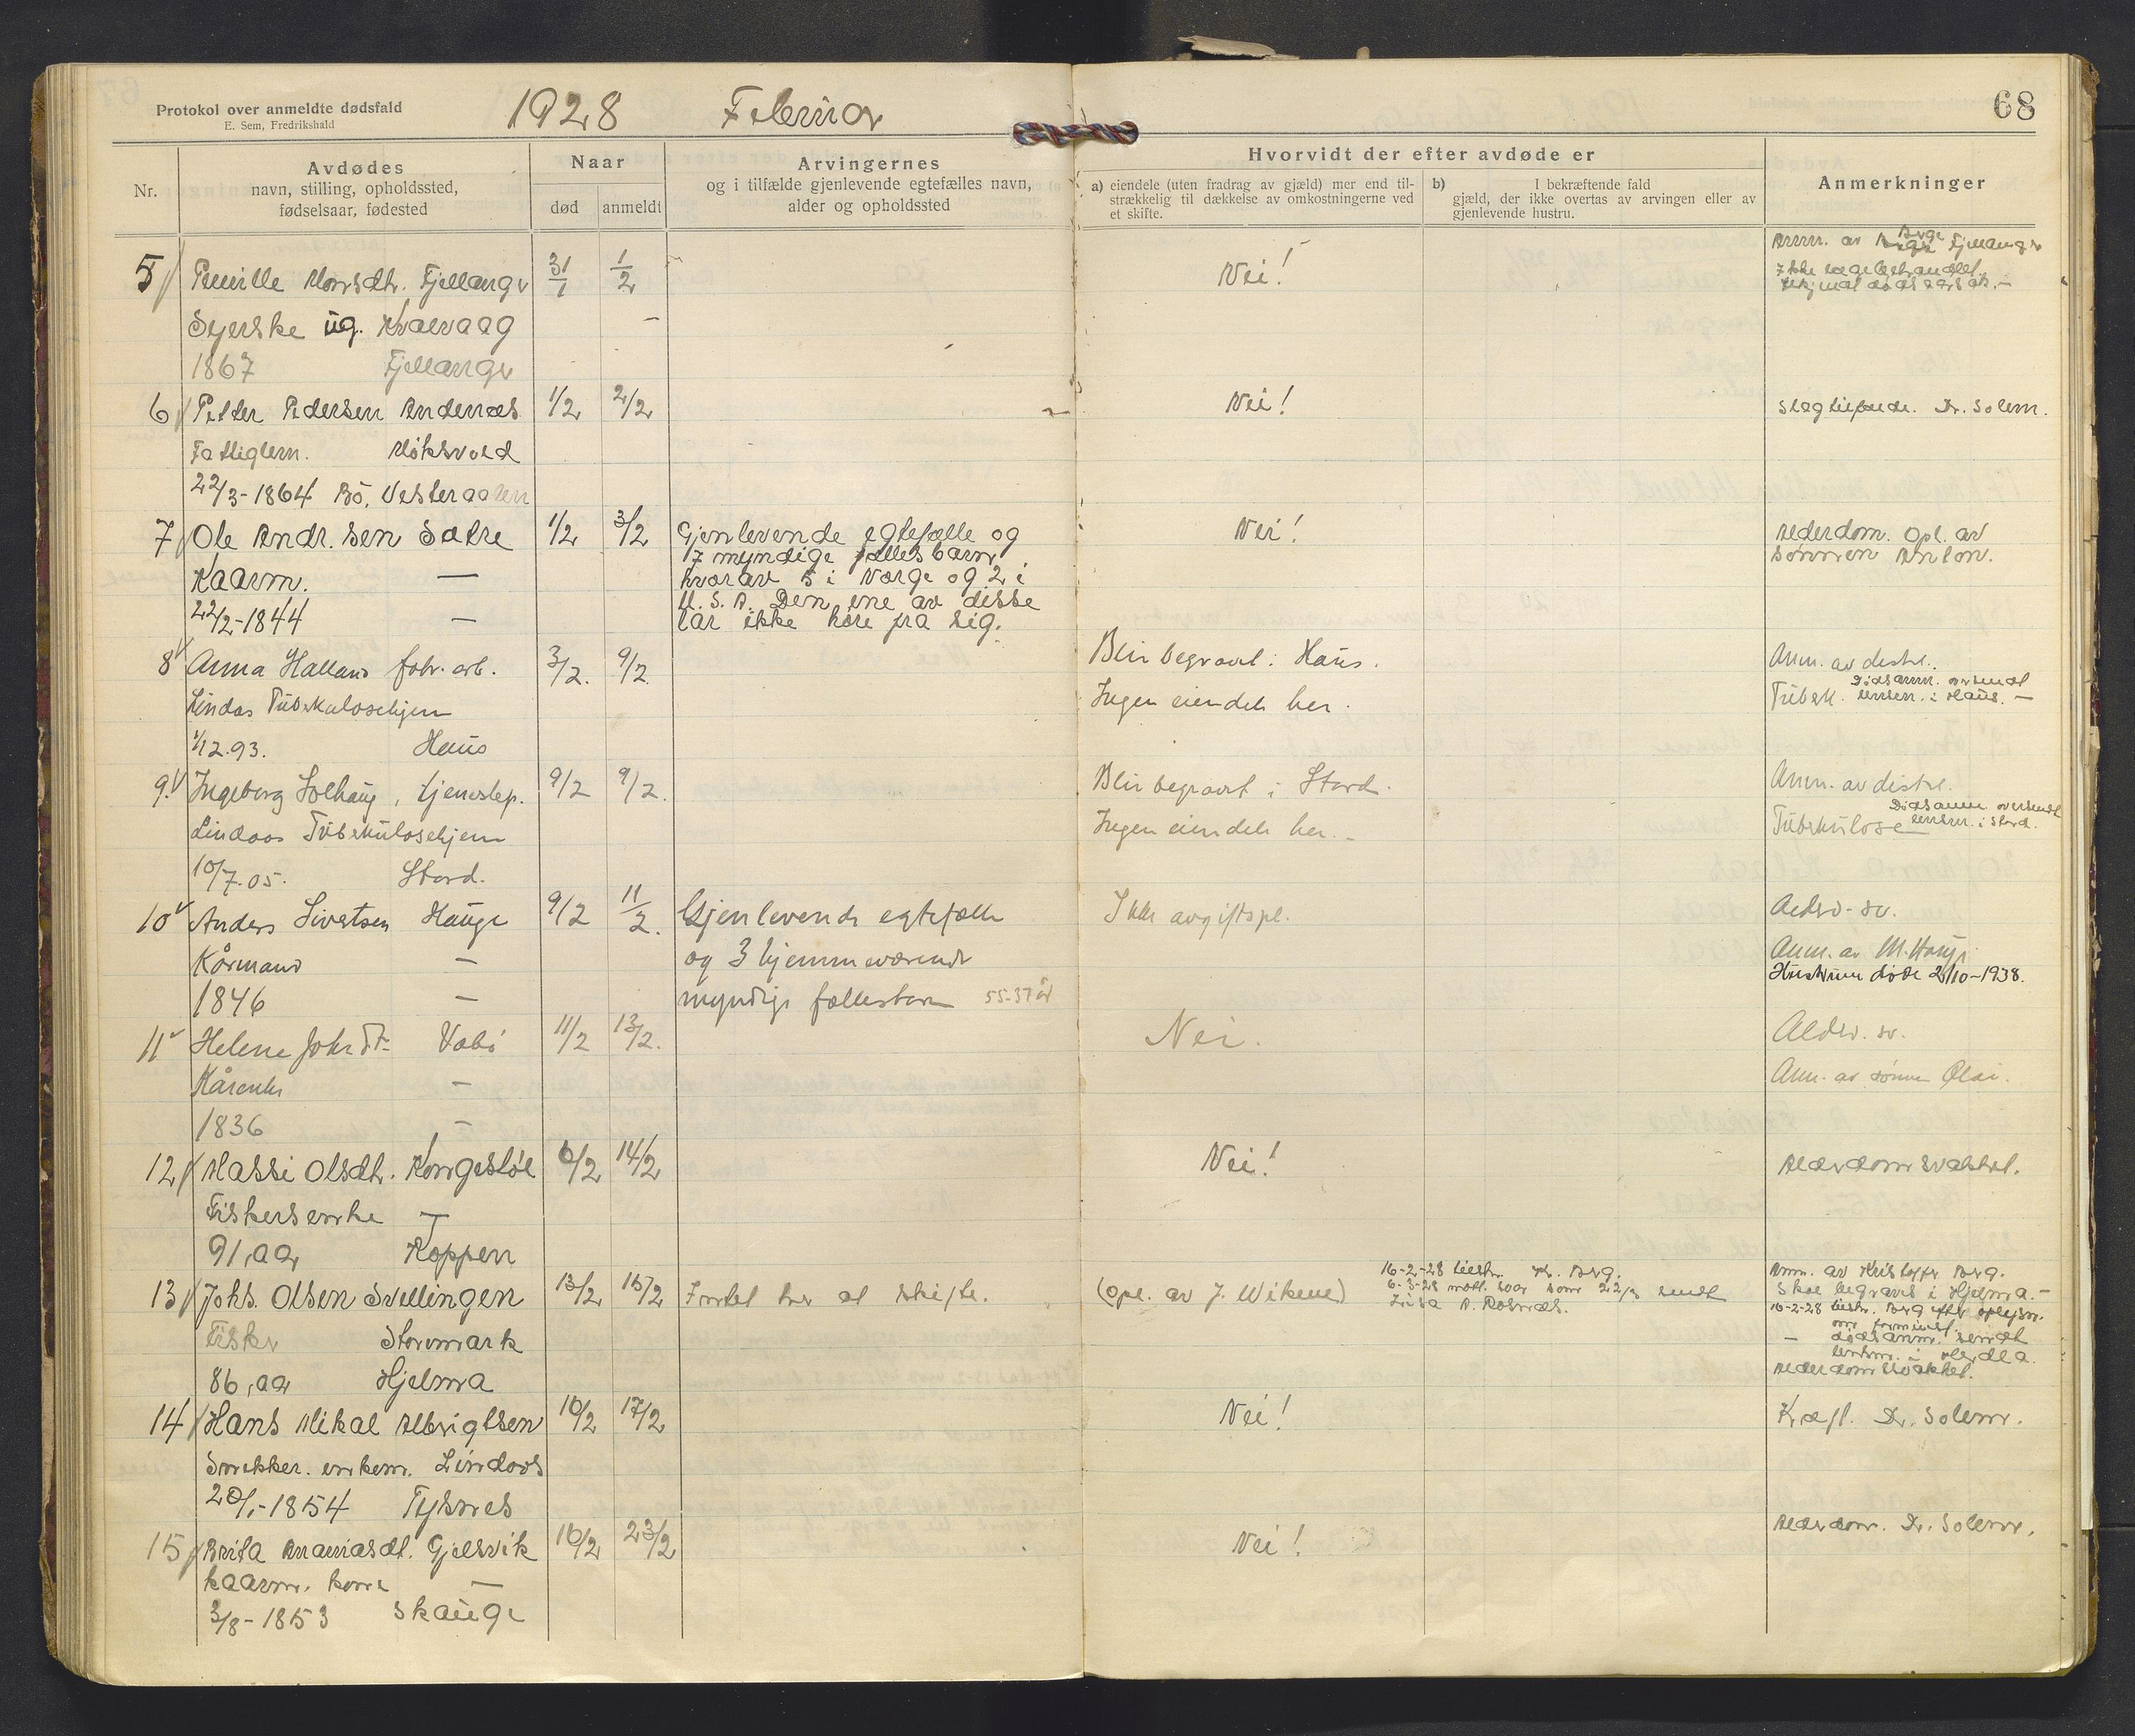 Protokol over anmeldte dødsfald
E. Sem, Fredrikshald
1928 Februar
68
Nr.
Avdødes
navn, stilling, opholdssted,
fødselsaar, fødested
Naar
død
anmeldt
Arvingernes
og i tilfælde gjenlevende egtefælles navn,
alder og opholdssted
Hvorvidt der efter avdøde er
a) eiendele (uten fradrag av gjæld) mer end til-
strækkelig til dækkelse av omkostningerne ved
et skifte.
b) I bekræftende fald
gjæld, der ikke overtas av arvingen eller av
gjenlevende hustru.
Anmerkninger
5 Pernille Monsdtr. Fjellanger 31/1 1/2 Nei! Anm. av Fjellanger
Syerske ug. Kvalvaag Ikke lægebehandlet.
1867 Fjellanger
6 Petter Pedersen Andenæs 1/2 2/2 Nei! Slagtilfælde. Dr. Solem.
Fattiglem. Moksvold
22/3-1864 Bö, Vesteraalen
7 Ole Andr.sen Sætre 1/2 3/2 Gjenlevende egtefælle og Nei! Alderdom. Opl. av
7 myndige fællesbarn, sönnen Anton.
Kaarm. — hvorav 5 i Norge og 2 i
22/2-1844 — U.S.A. Den ene av disse
lar ikke höre fra sig.
8 Anna Halland fabr. arb. 3/2. 9/2. Blir begravet i Haus. Anm. av distrl.
Lindås Tüberkulosehjem Ingen eiendele her. Tüberk. Dödsanm. oversendt lensm. i Haus. —
1/12.93. Haus
9. Ingeborg Solhaug, tjenestep. 9/2 9/2. Blir begravet i Stord. Anm. av distrl.
Lindaas Tüberkulosehjem Ingen eiendele her. — Tüberkulose Dödsanm. oversendt lensm. i Stord.
10/7.05. Stord.
10 Anders Sivertsen Hauge 9/2 11/2. Gjenlevende egtefælle Ikke avgiftspl. Alderd-sv.
Kårmand — og 3 hjemmeværende Anm. av M. Hauge
Hustruen döde 2/10-1938.
1846 — myndige fællesbarn 55-37 år
11 Helene Johsdt. Vabö 11/2 13/2. Nei. Alderd. sv.
Kårenke — Anm. av sönnen Olai.
1836 —
12 Massi Olsdtr. Kongestöl 6/2 14/2 Nei! Alderdomsvakhet.
Fiskersenke —
91, aar Koppen
13 Johs. Olsen Svellingen 13/2 15/2 Intet her at skifte. (Opl. av J. Wikene) 16-2-28 tilskr. Kr. Berg. Anm. av Kristoffer Berg.
6-3-28 mott. svar som 22/3 sendt Skal begraves i Hjelma. —
16-2-28 tilskr. Berg efter oplysn.
Fisker Stormark — dödsanm. sendt
lensm. i Herdla.
86, aar Hjelma Alderdomssvakhet.
14 Hans Mikal Albrigtsen 16/2 17/2 Nei! Kræft. Dr. Solem.
Snekker. enkem. Lindaas
20/1-1854 Tysnes
15 Brita Ananiasdt. Gjelsvik 16/2 23/2 Nei! Alderdom. Dr. Solem.
kaarm. kone —
3/8-1853 Skauge